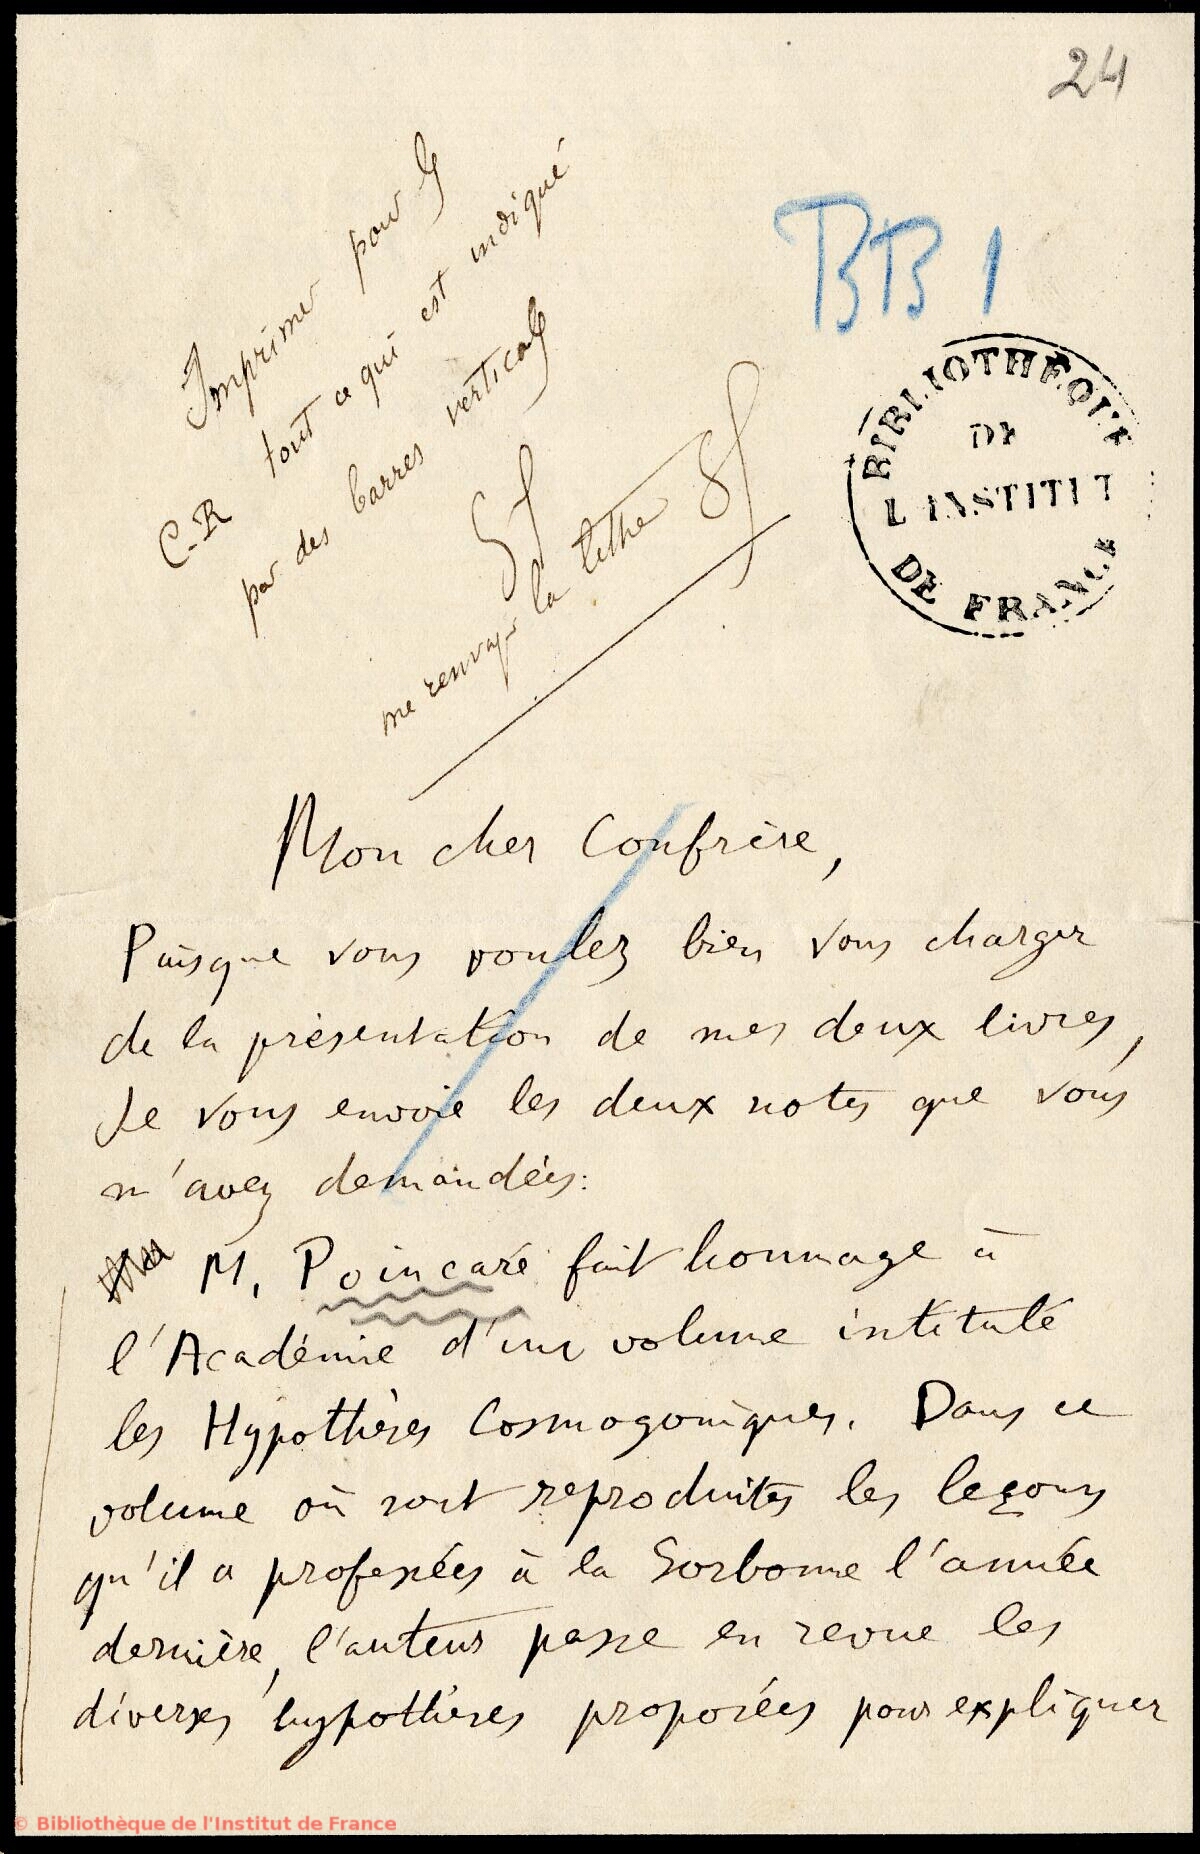 24
BB 1
Imprimer pour les
C-R tout ce qui est indiqué
par des barres verticales
me renvoyer la lettre
BIBLIOTHÈQUE
DE
L'INSTITUT
DE FRANCE
Mon cher Confrère,
Puisque vous voulez bien vous charger
de la présentation de mes deux livres,
Je vous envoie les deux notes que vous
m'avez demandées:
M. Poincaré fait hommage à
l'Académie d'un volume intitulé
les Hypothèses Cosmogoniques. Dans ce
volume où sont reproduites les leçons
qu'il a professées à la Sorbonne l'année
dernière, l'auteur passe en revue les
diverses hypothèses proposées pour expliquer
© Bibliothèque de l'Institut de France